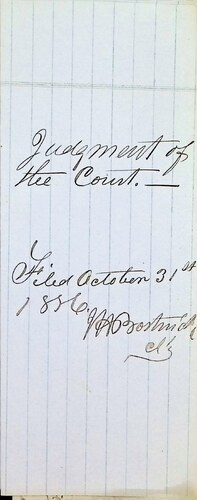 Judgment of
the Court. —
Filed October 31st
1856.
Clk